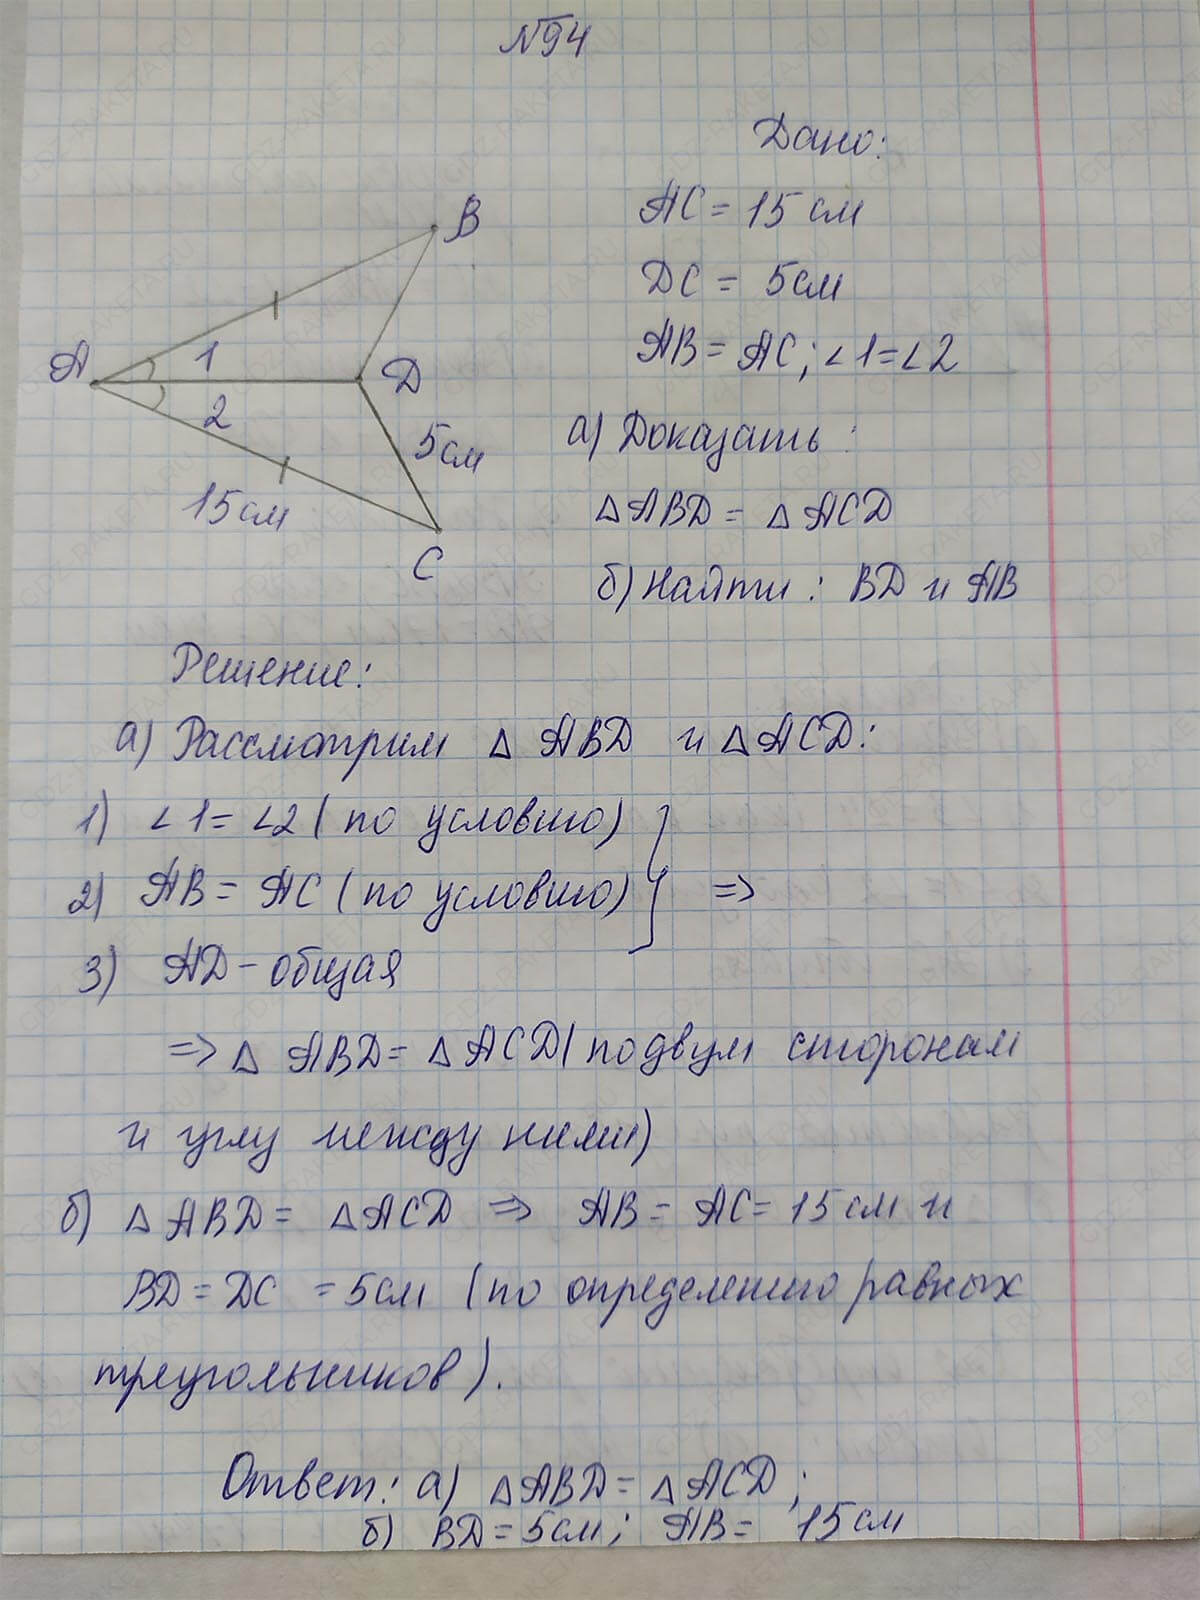 №94
Дано:
AC = 15 см
DC = 5 см
AB = AC; ∠1 = ∠2
а) Доказать:
△ABD = △ACD
б) Найти: BD и AB
B
A
1
D
2
5 см
15 см
C
Решение:
а) Рассмотрим △ ABD и △ACD:
1) ∠1 = ∠2 (по условию)
2) AB = AC (по условию) =>
3) AD - общая
=> △ ABD = △ACD (по двум сторонам
и углу между ними)
б) △ABD = △ACD => AB = AC = 15 см и
BD = DC = 5 см (по определению равных
треугольников).
Ответ: а) △ABD = △ACD;
б) BD = 5 см; AB = 15 см